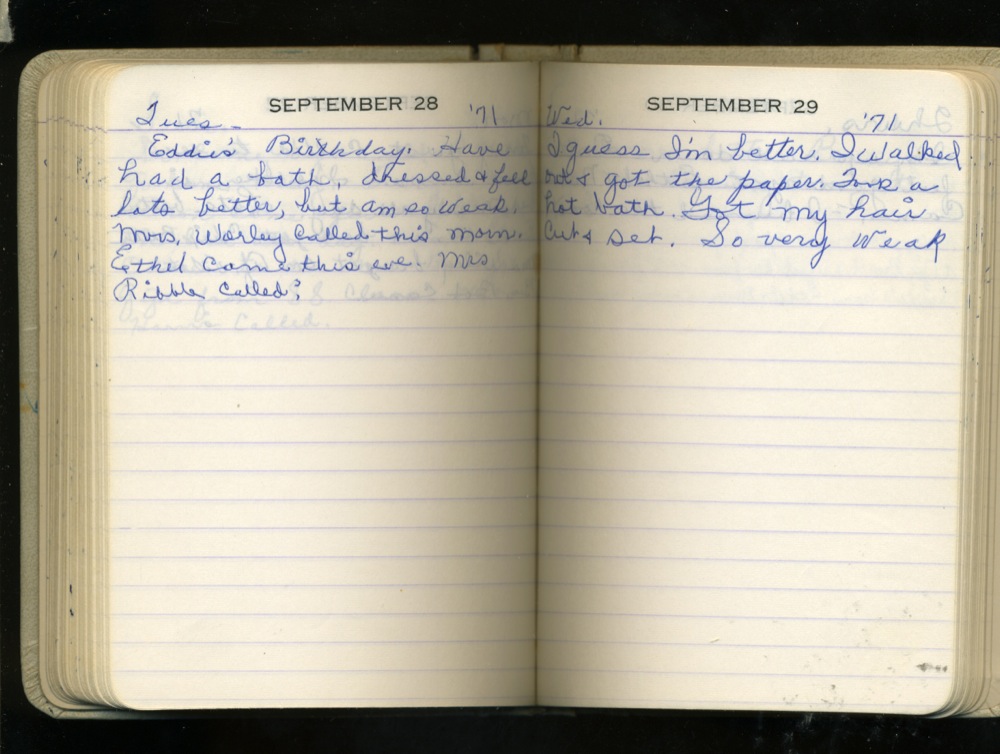 SEPTEMBER 28
Tues - '71
Eddie's Birthday. Have
had a bath, dressed & feel
lots better, but am so weak.
Mrs. Worley called this morn.
Ethel came this eve. Mrs
Ribble called.
called.
SEPTEMBER 29
Wed. '71
I guess I'm better. I walked
out & got the paper. Took a
hot bath. Got my hair
cut & set. So very weak